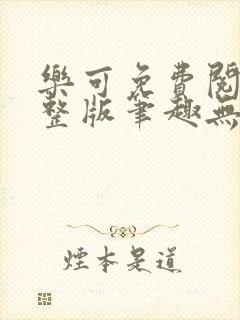 樂可免費閱
整版筆趣無
煙本是道